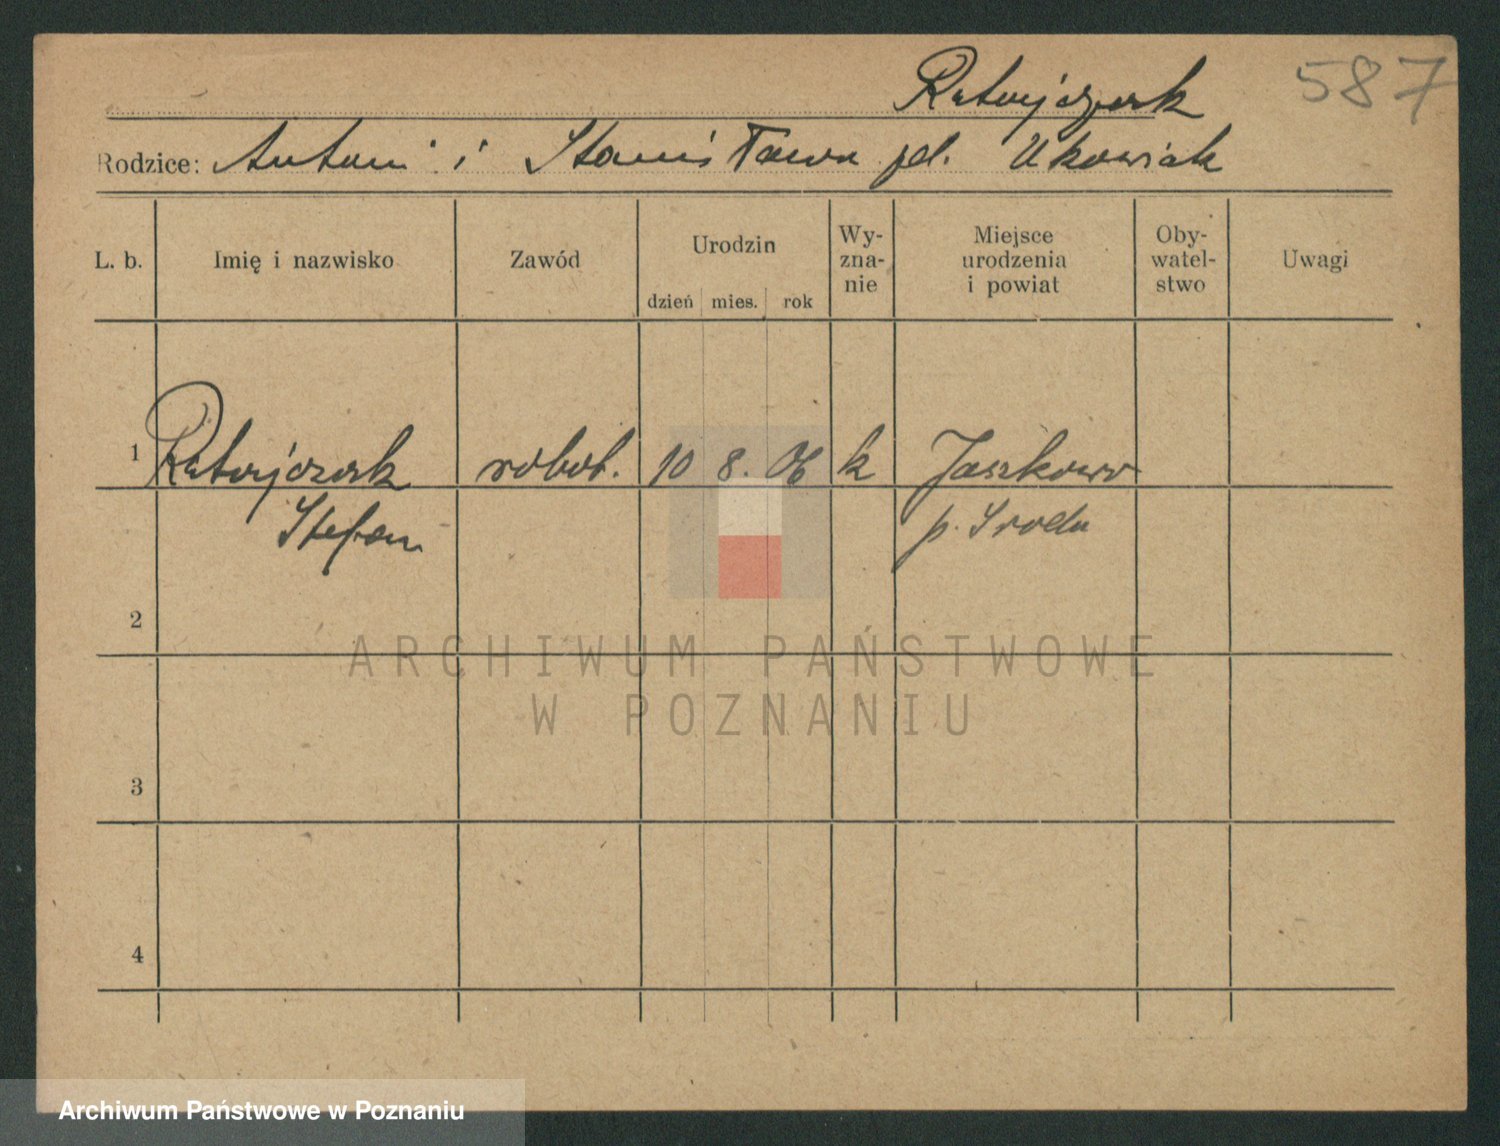 Ratajczak 587
Rodzice: Antoni i Stanisława zd.
L. b. Imię i nazwisko Zawód Urodzin dzień mies. rok Wy-zna-nie Miejsce urodzenia i powiat Oby-watel-stwo Uwagi
1 Ratajczak robot. 10 8. 06 k Jaszkowo
Stefan p. Sroda
2
ARCHIWUM PAŃSTWOWE
W POZNANIU
3
4
Archiwum Państwowe w Poznaniu